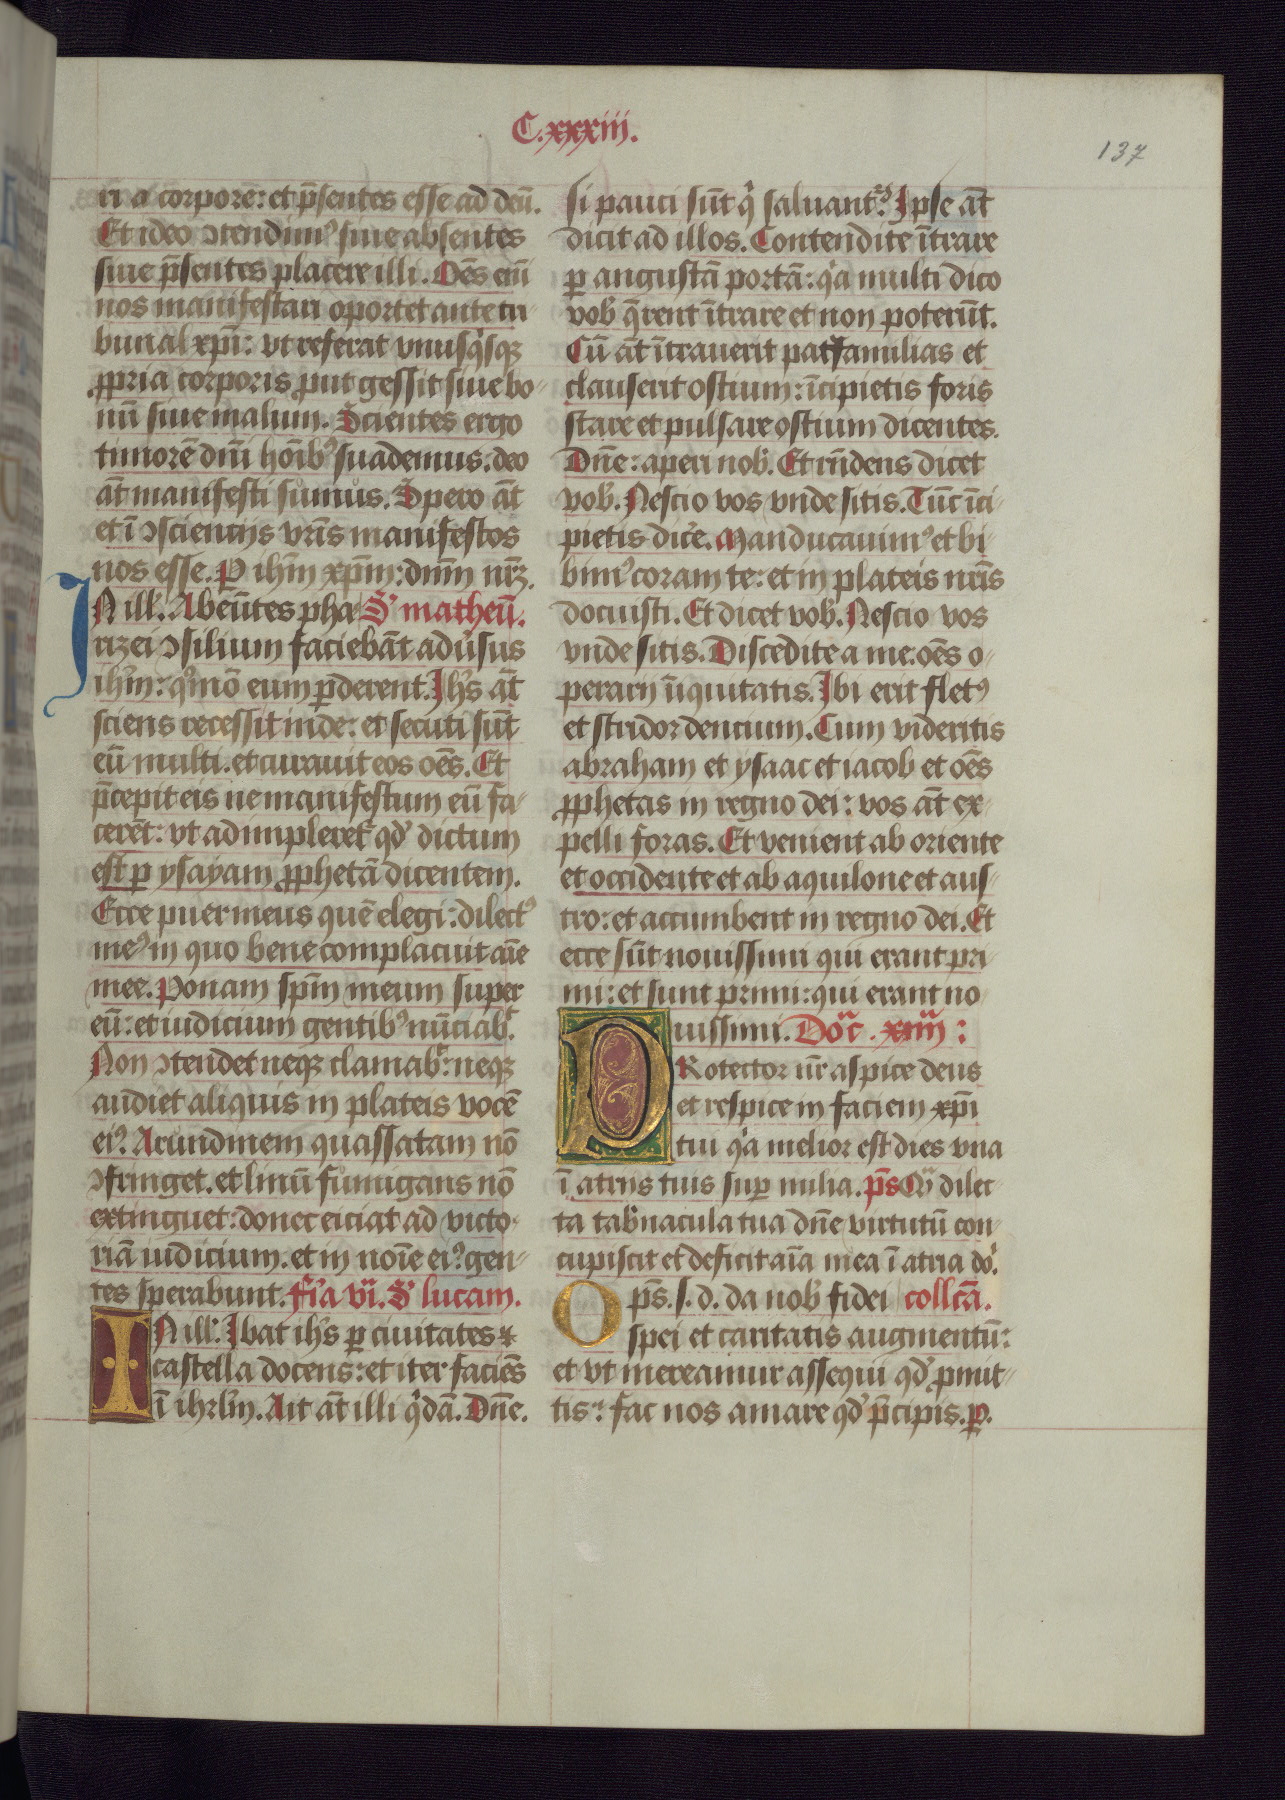 C.xxxiii.
137
ri a corpore: et p̄sentes esse ad deū.
Et ideo ↄtendimꝰ siue absentes
siue p̄sentes placere illi. Oēs em̄
nos manifestari oportet ante tri
bunal xp̄i: vt referat vnusqͥsqꝫ
ꝓpria corporis ꝓut gessit siue bo
nū siue malum. Scientes ergo
timorē dn̄i hoībꝰ suademus: deo
āt manifesti sumus. Spero āt
et ī ↄscientijs vr̄is manifestos
nos esse. P ihm̄ xp̄m: dnm̄ nr̄ꝫ.
IN ill'. Abeūtes pha S' matheū.
rizei ↄsilium faciebāt adūsus
ihm̄: qͦmō eum ꝑderent. Ihs̄ āt
sciens recessit inde: et secuti sūt
eū multi. et curauit eos oēs. Et
p̄cepit eis ne manifestum eū fa
cerēt: vt adimpleretᷣ qd' dictum
est ꝑ ysayam ꝓphetā dicentem.
Ecce puer meus quē elegi: dilectꝰ
meꝰ in quo bene complacuit aīe
mee. Ponam spm̄ meum super
eū: et iudicium gentibꝰ nūciabᷣ.
Non ↄtendet neqꝫ clamabᷣ: neqꝫ
audiet aliquis in plateis vocē
eiꝰ. Arundinem quassatam nō
ↄfringet. et linū fumigans nō
extinguet: donec eiciat ad victo
riā iudicium. et in noīe eiꝰ gen
tes sperabunt. fr̄ia vi. S' lucam.
IN ill'. Ibat ihs̄ ꝑ ciuitates ⁊
castella docens: et iter faciēs
ī ihrlm̄. Ait āt illi qͥdā. Dn̄e.
si pauci sūt qͥ saluantᷣ? Ipse āt
dicit ad illos. Contendite ītrare
ꝑ angustā portā: qͥa multi dico
vob' q̄rent ītrare et non poterūt.
Cū āt ītrauerit pat̄familias et
clauserit ostium: īcipietis foris
stare et pulsare ostium dicentes.
Dn̄e: aperi nob'. Et rn̄dens dicet
vob'. Nescio vos vnde sitis. Tūc īci
pietis dicē. Manducauimꝰ et bi
bimꝰ coram te: et in plateis nr̄is
docuisti. Et dicet vob'. Nescio vos
vnde sitis. Discedite a me: oēs o
perarij īiquitatis. Ibi erit fletꝰ
et stridor dencium. Cum videritis
abraham et ysaac et iacob et oēs
ꝓphetas in regno dei: vos āt ex
pelli foras. Et venient ab oriente
et occidente et ab aquilone et aus
tro: et accumbent in regno dei. Et
ecce sūt nouissimi qui erant pri
mi: et sunt primi: qui erant no
uissimi. Doīc . xiiii :
PRotector nr̄ aspice deus
et respice in faciem xp̄i
tui qͥa melior est dies vna
ī atrijs tuis suꝑ milia. p̄s Qͣ dilec
ta tab'nacula tua dn̄e virtutū con
cupiscit et deficit aīa mea ī atria do'.
Op̄s. s. d. da nob' fidei collc̄a.
spei et caritatis augmentū:
et vt mereamur assequi qd' ꝓmit
tis: fac nos amare qd' p̄cipis. ꝑ.